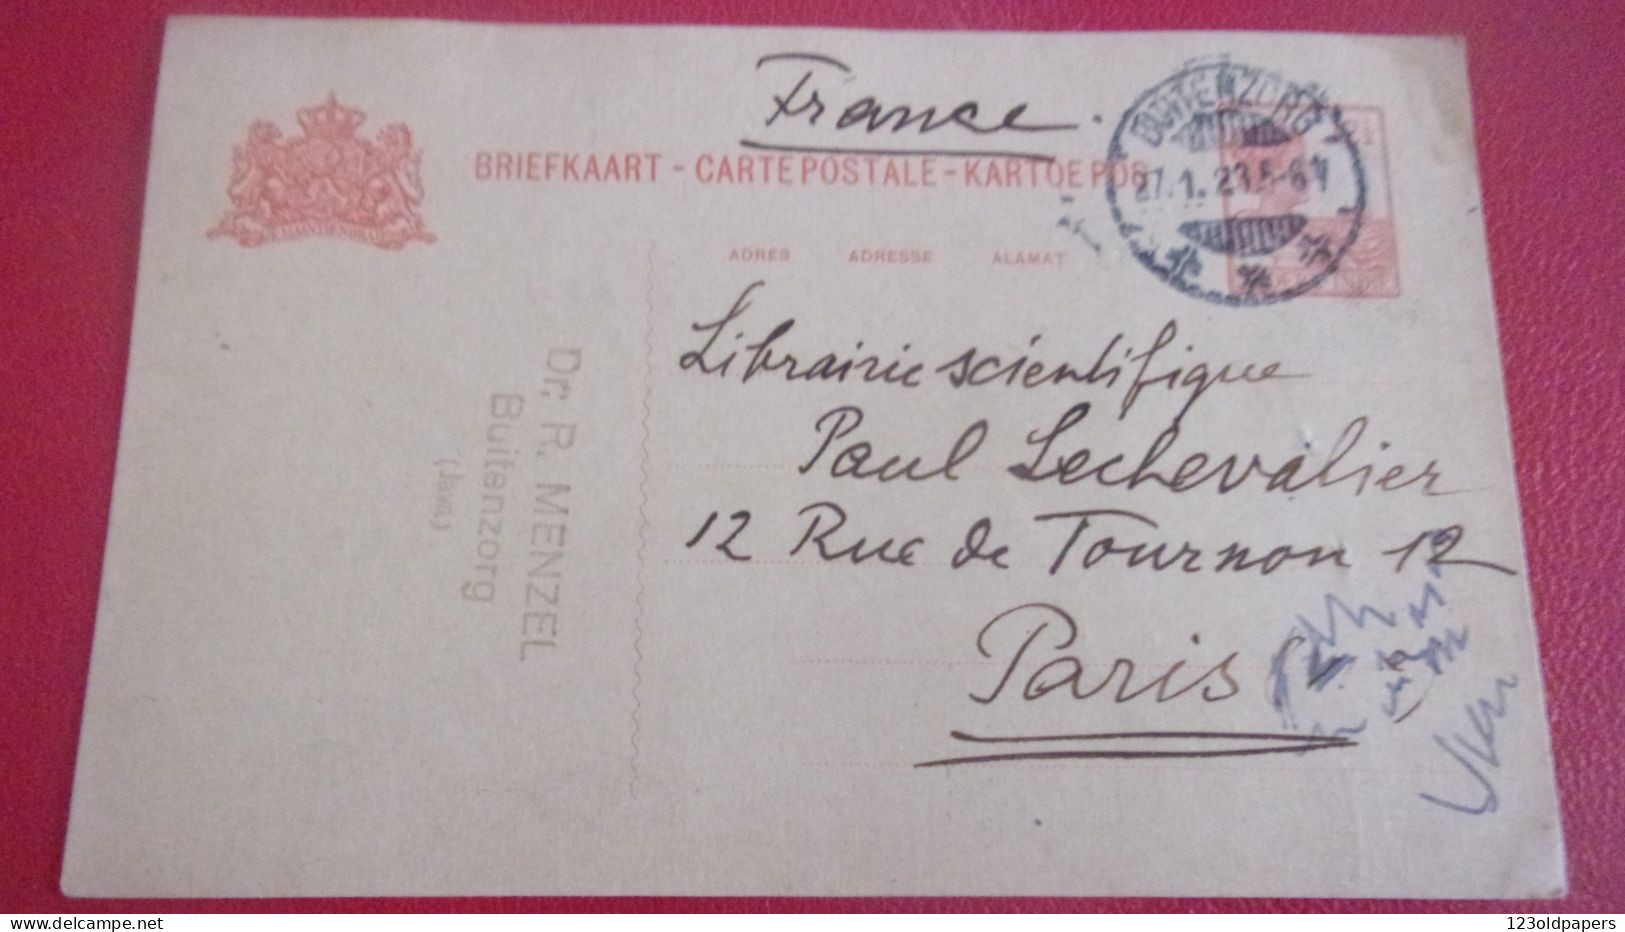 France.
BRIEFKAART - CARTE POSTALE - KARTOE POS
BUITENZORG
27.1.23.5-6
ADRES ADRESSE ALAMAT
Librairie scientifique
Paul Lechevalier
12 Rue de Tournon 12
Paris
Dr. R. MENZEL
Buitenzorg
(Java)
123oldpapers